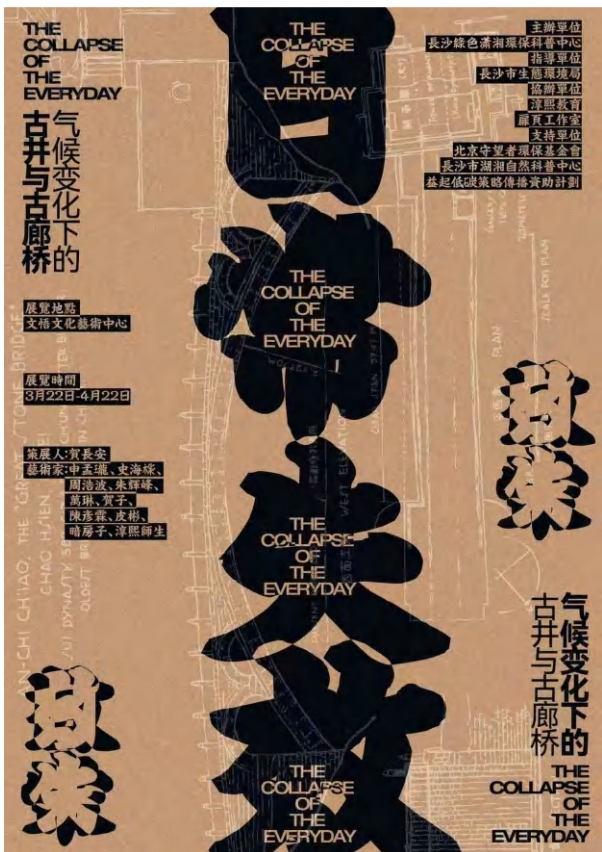 THE
COLLAPSE
OF
THE
EVERYDAY
气候变化下的
古井与古廊桥
展覽地點
文悟文化藝術中心
展覽時間
3月22日-4月22日
策展人:賀長安
藝術家:申孟瓏、史海
周浩波、朱輝峰、
萬琳、賀子、
陳彥霖、皮彬、
暗房子、淳熙師生
日常
日常失效
THE
COLLAPSE
OF
THE
EVERYDAY
THE
COLLAPSE
OF
THE
EVERYDAY
THE
COLLAPSE
OF
THE
EVERYDAY
THE
COLLAPSE
OF
THE
EVERYDAY
主辦單位
長沙綠色瀟湘環保科普中心
指導單位
長沙市生態環境局
協辦單位
淳熙教育
扉頁工作室
支持單位
北京守望者環保基金會
長沙市湖湘自然科普中心
益起低碳策略傳播資助計劃
日常
气候变化下的
古井与古廊桥
THE
COLLAPSE
OF
THE
EVERYDAY
AN-CHI CH'IAO, THE "GREAT STONE BRIDGE"
CHAO HSIEN
SUI DYNASTY
OLDEST
WEST ELEVATION
PLAN
SCALE FOR PLAN